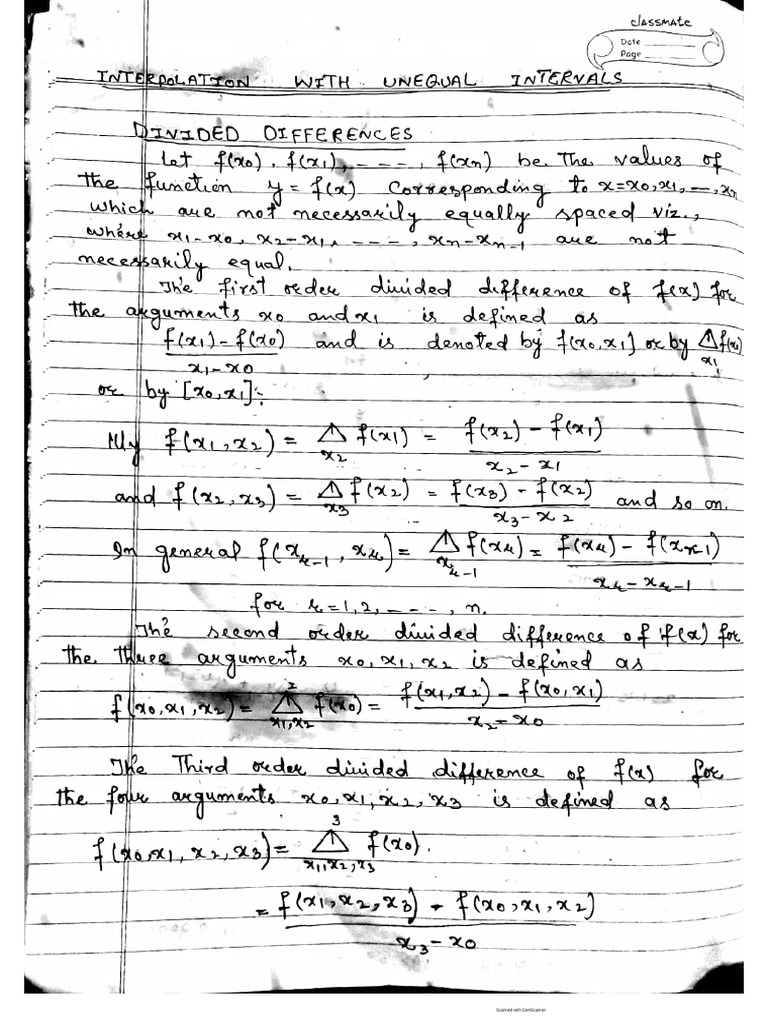 classmate
Date
Page
INTERPOLATION WITH UNEQUAL INTERVALS
DIVIDED DIFFERENCES
Let f(x0), f(x1), ----, f(xn) be the values of
the function y = f(x) corresponding to x=x0,x1,--,xn
which are not necessarily equally spaced viz.,
where x1-x0, x2-x1, ----, xn-xn-1 are not
necessarily equal.
The first order divided difference of f(x) for
the arguments x0 and x1 is defined as
f(x1) - f(x0) / x1-x0 and is denoted by f(x0,x1] or by ⧋ x1 f(x0)
or by [x0,x1]:
Illy f(x1,x2) = ⧋ x2 f(x1) = f(x2) - f(x1) / x2 - x1
and f(x2,x3) = ⧋ x3 f(x2) = f(x3) - f(x2) / x3 - x2 and so on.
In general f(xr-1, xr) = ⧋ xr-1 f(xr) = f(xr) - f(xr-1) / xr - xr-1
for r = 1,2, ----, n.
The second order divided difference of f(x) for
the three arguments x0,x1,x2 is defined as
f(x0,x1,x2) = ⧋² x1,x2 f(x0) = f(x1,x2) - f(x0,x1) / x2 - x0
The Third order divided difference of f(x) for
the four arguments x0,x1,x2,x3 is defined as
f(x0,x1,x2,x3) = ⧋³ x1,x2,x3 f(x0).
= f(x1,x2,x3) - f(x0,x1,x2) / x3 - x0
Scanned with CamScanner